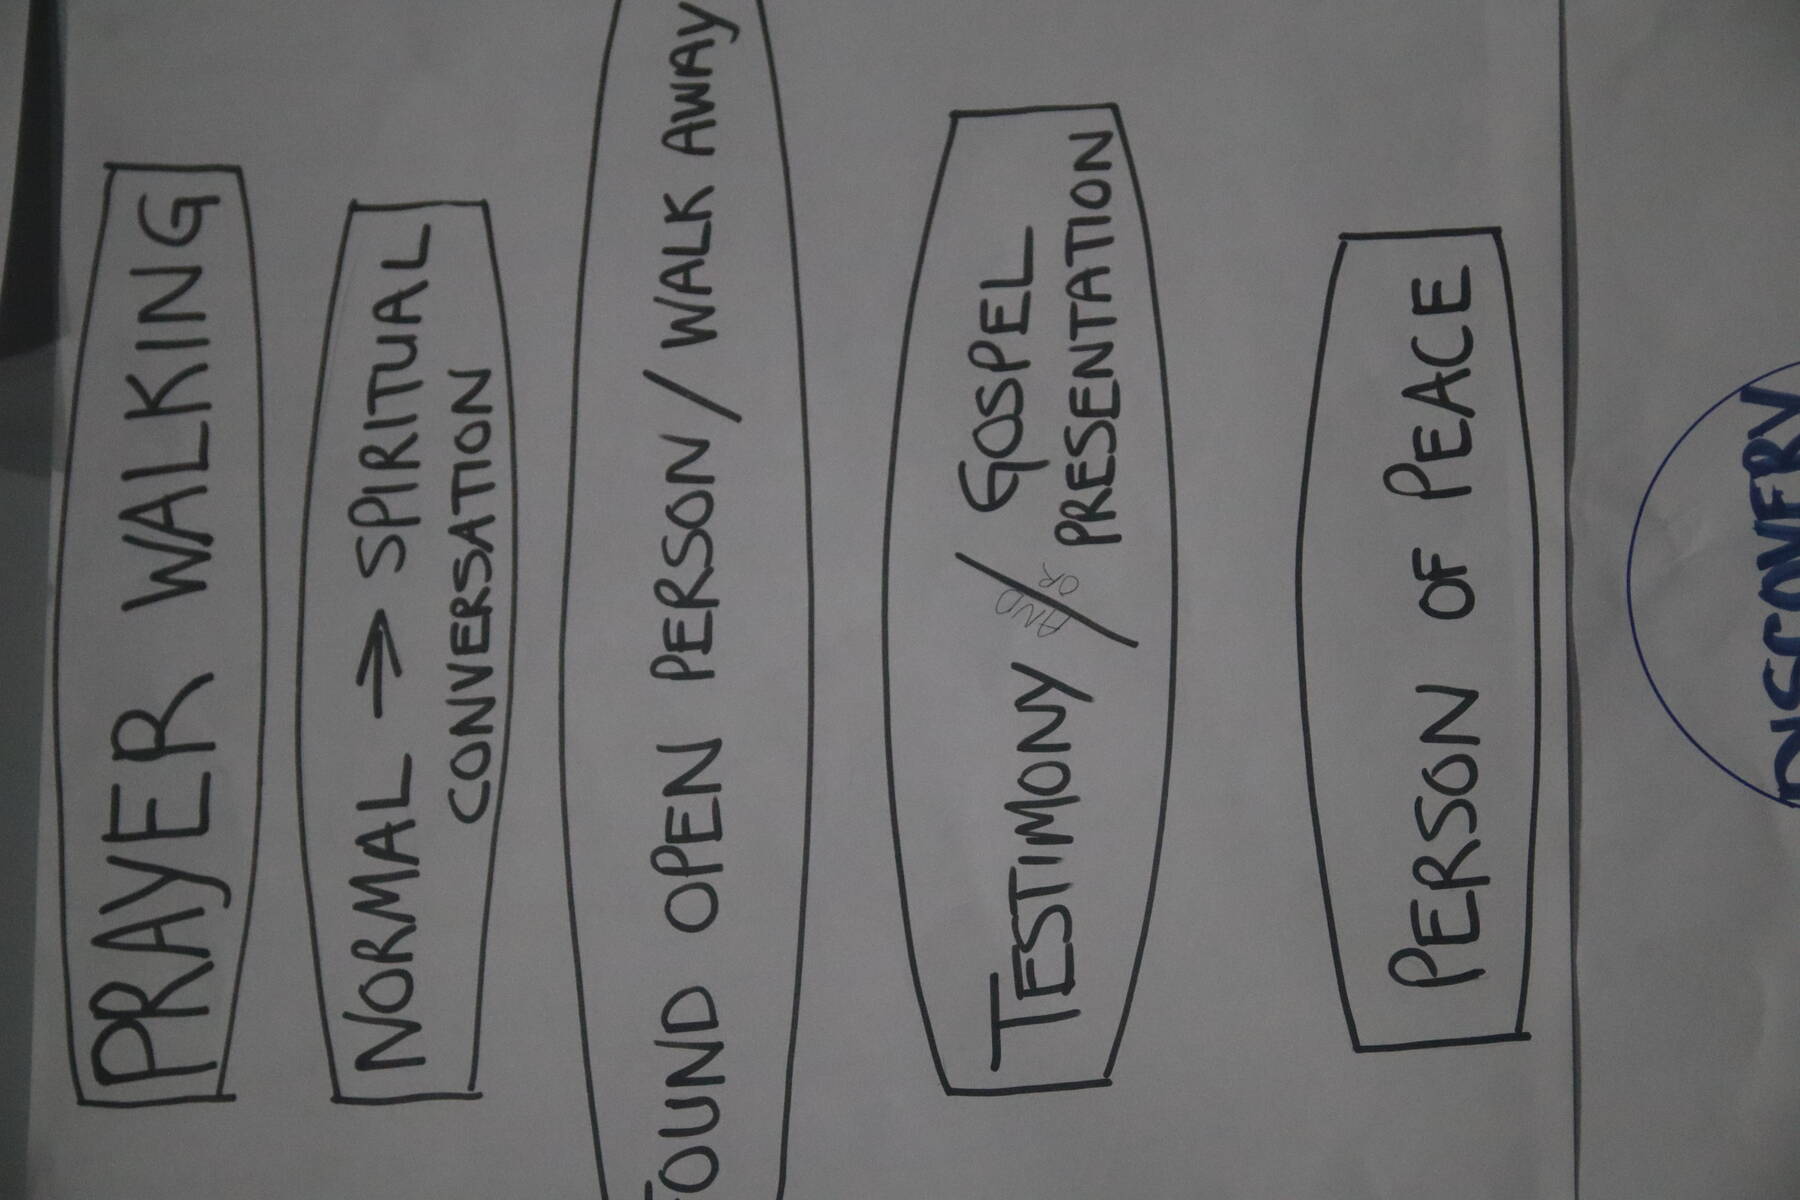 PRAYER WALKING
NORMAL → SPIRITUAL
CONVERSATION
FOUND OPEN PERSON / WALK AWAY
TESTIMONY / GOSPEL
AND
OR
PRESENTATION
PERSON OF PEACE
DISCOVERY